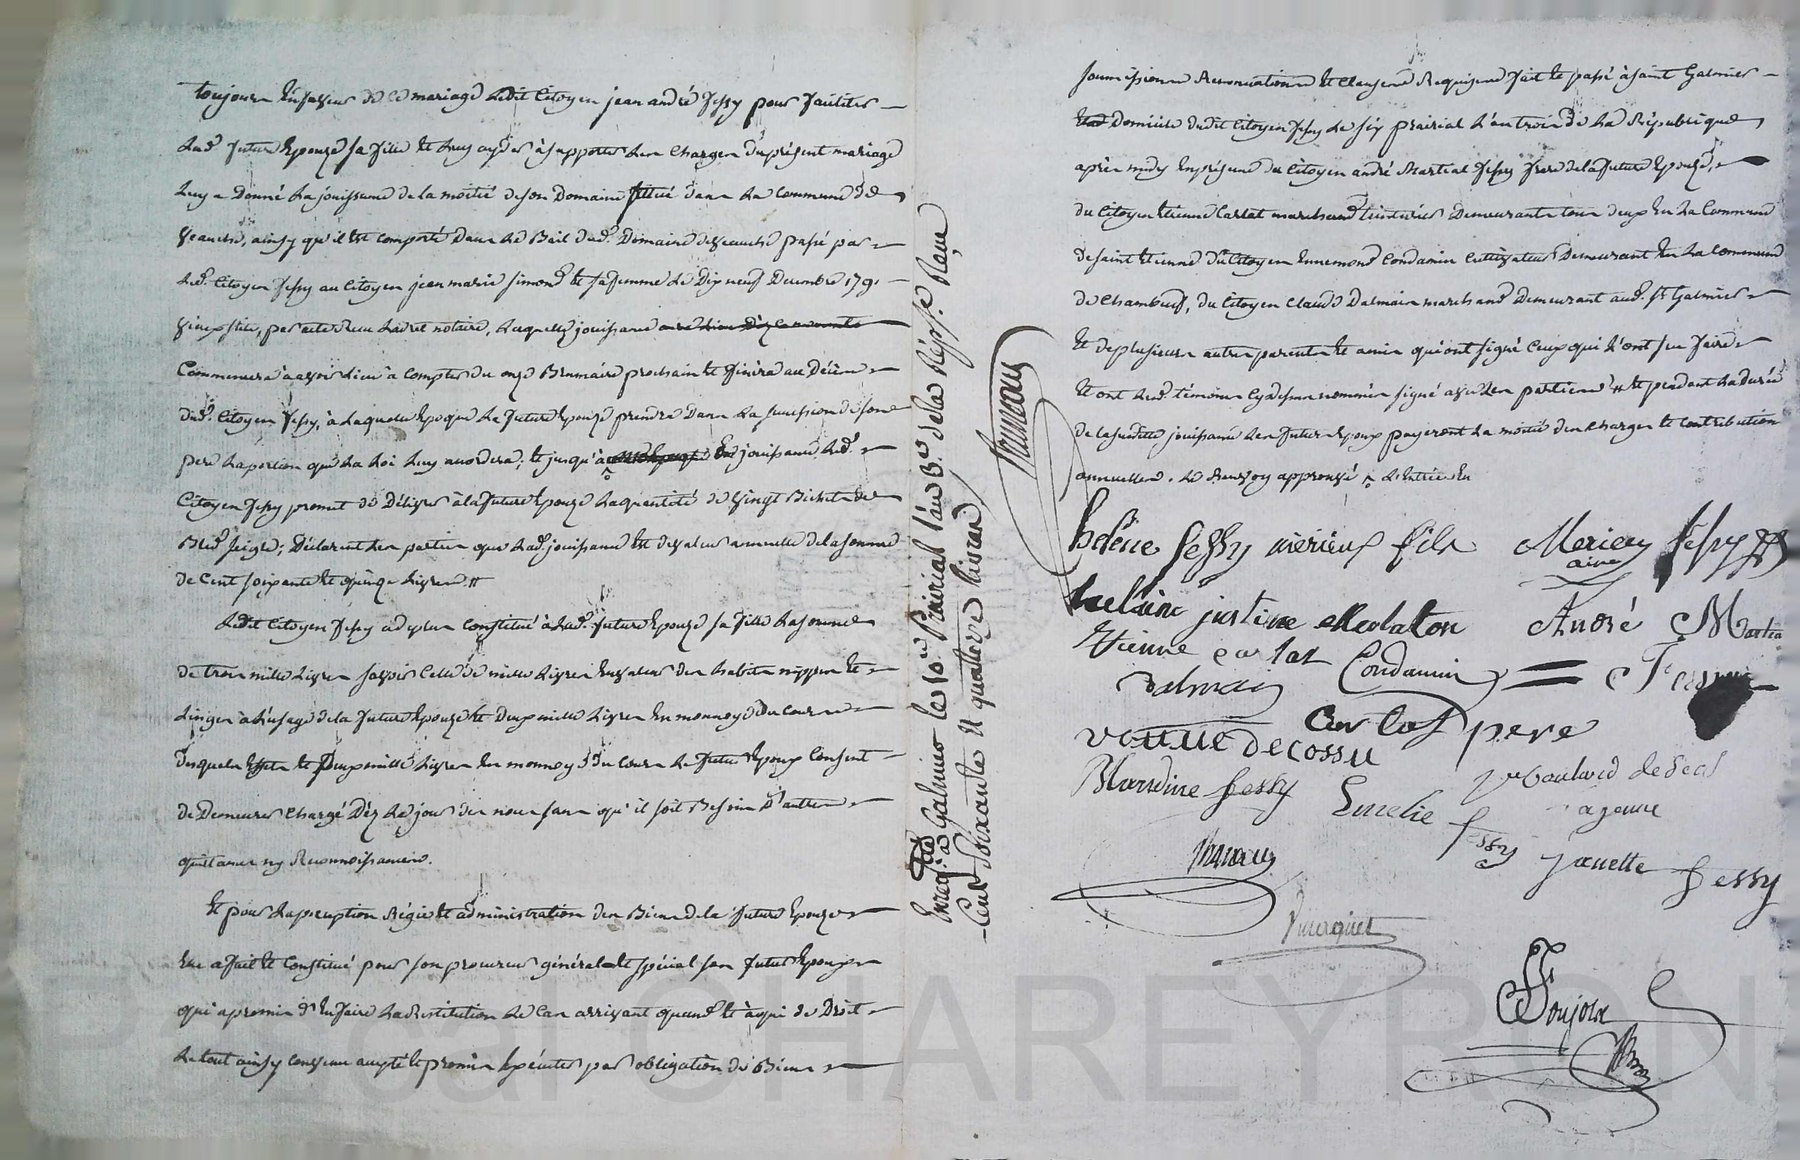 toujours En faveur de Ce mariage Ledit Citoyen jean andré fessy pour faciliter
Lad. future Epouze sa fille Et Luy ayder à supporter Les Charges du présent mariage
Luy a Donné La jouissance de la moitié de son Domaine situé dans La Commune de
Veauche, ainsy qu'il Est Comporté Dans Le Bail dud. Domaine de Veauche passé par
Led. Citoyen fessy au Citoyen jean marie simond Et sa femme Le Dix neuf Decembre 1791
vieux stile, par acte reçu Ledit notaire, Laquelle jouissance
Commencera à avoir Lieu à Compter du onze Brumaire prochain Et finira au Décès
dud. Citoyen fessy, à Laquelle Epoque La future Epouze prendra Dans La succession de son
pere La portion que La Loi Luy accordera; Et jusqu'à jouissance Led.
Citoyen fessy promet de Délivrer à la future Epouze La quantité de vingt Bichets de
Bled seigle; Déclarent Les parties que Lad. jouissance Est de valeur annuelle de la somme
de Cent soixante Et quinze Livres #
Ledit Citoyen fessy a de plus Constitué à Lad. future Epouze sa fille La somme
de trois mille Livres savoir Celle de mille Livres En valeur des habits nippes Et
Linges à L'usage de la future Epouze Et Deux mille Livres En monnoye du Cours
Desquels Effets Et Deux mille Livres En monnoye du Cours Le futur Epoux Consent
de Demeurer Chargé Dez Le jour des noces sans qu'il soit Besoin D'autres
quittances ny Reconnoissances.
Et pour La perception Régie Et administration des Biens de la future Epouze
Elle a fait Et Constitué pour son procureur général Et spécial son futur Epoux
qui a promis d'En faire La Restitution Le Cas arrivant quand Et à qui de Droit
Le tout ainsy Convenu accepté Et promis Exécuter par obligation de Biens
Enregé. à Galmier le 10 Prairial l'an 3e. dela Républe. Reçu
Cent Soixante et quatorze livres
soumissions Renonciations Et Clauses Requises fait Et passé à saint Galmier
Domicile dudit Citoyen fessy Le six prairial L'an trois de La République
après midy En présence du Citoyen andré Martial fessy frere de la future Epouze,
du Citoyen Etienne Carlat marchand teinturier Demeurants tous deux En La Commune
de saint Etienne du Citoyen Ennemond Condamin Cultivateur Demeurant En La Commune
de Chambeuf, du Citoyen Claude Dalmais marchand Demeurant aud. St Galmier
Et de plusieurs autres parents Et amis qui ont signé Ceux qui L'ont sçu faire
Et ont Led. témoins Cy dessus nommés signé avec Les parties # Et pendant La durée
de la susditte jouissance Les futurs Epoux payeront La moitié des Charges Et Contributions
annuelles. Le Renvoy approuvé ^ L'Entrée En
helène fessy merieux fils Merieux fessy
ainé
helaine justine André Martial
Etienne carlat Condamin = Fessy
Dalmais
Carlat pere
veuve decossu
Blandine fessy Emelie fessy
janette fessy
PASCAL CHAREYRON